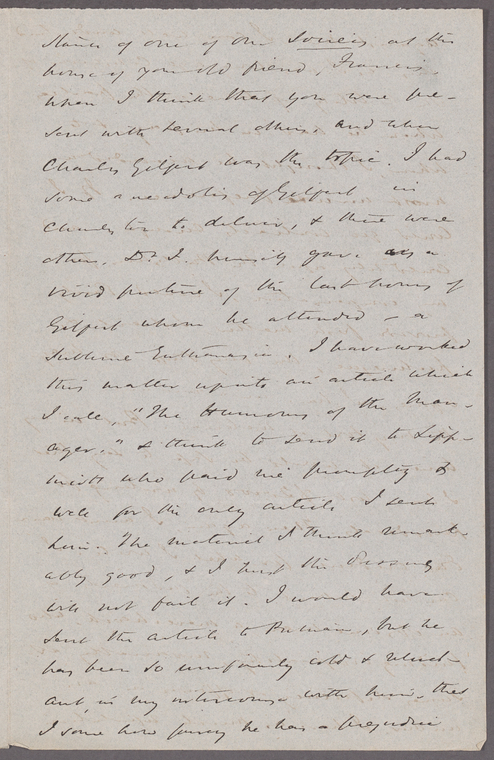 stance of one of our Soirées at the
house of your old friend, Francis,
when I think that you were pre-
sent with several others, and when
Charles Gilfert was the topic. I had
some anecdotes of Gilfert in
Charleston to deliver, & there were
others. Dr. F. himself gave us a
vivid picture of the last hours of
Gilfert whom he attended – a
sublime Euthanasia. I have worked
this matter up into an article which
I call "The Humours of the Man-
ager." & think to send it to Lipp-
incott who paid me promptly &
well for the only article I sent
him. The material I think remark-
ably good, & I trust the
will not fail it. I would have
sent the article to Putnam, but he
has been so uniformly cold & reluct-
ant, in my intercourse with him, that
I some how fancy he has a prejudice